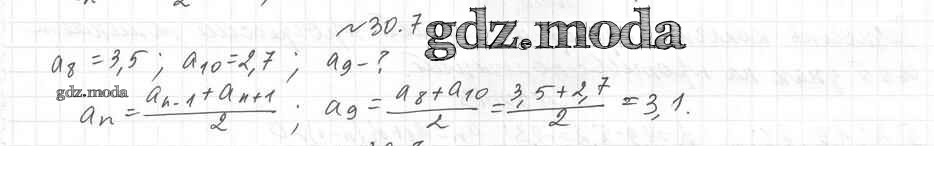 ~30.7 gdz.moda
a₈ = 3,5 ; a₁₀ = 2,7 ; a₉ - ?
gdz.moda
aₙ = (aₙ₋₁ + aₙ₊₁)/2 ; a₉ = (a₈ + a₁₀)/2 = (3,5 + 2,7)/2 = 3,1.